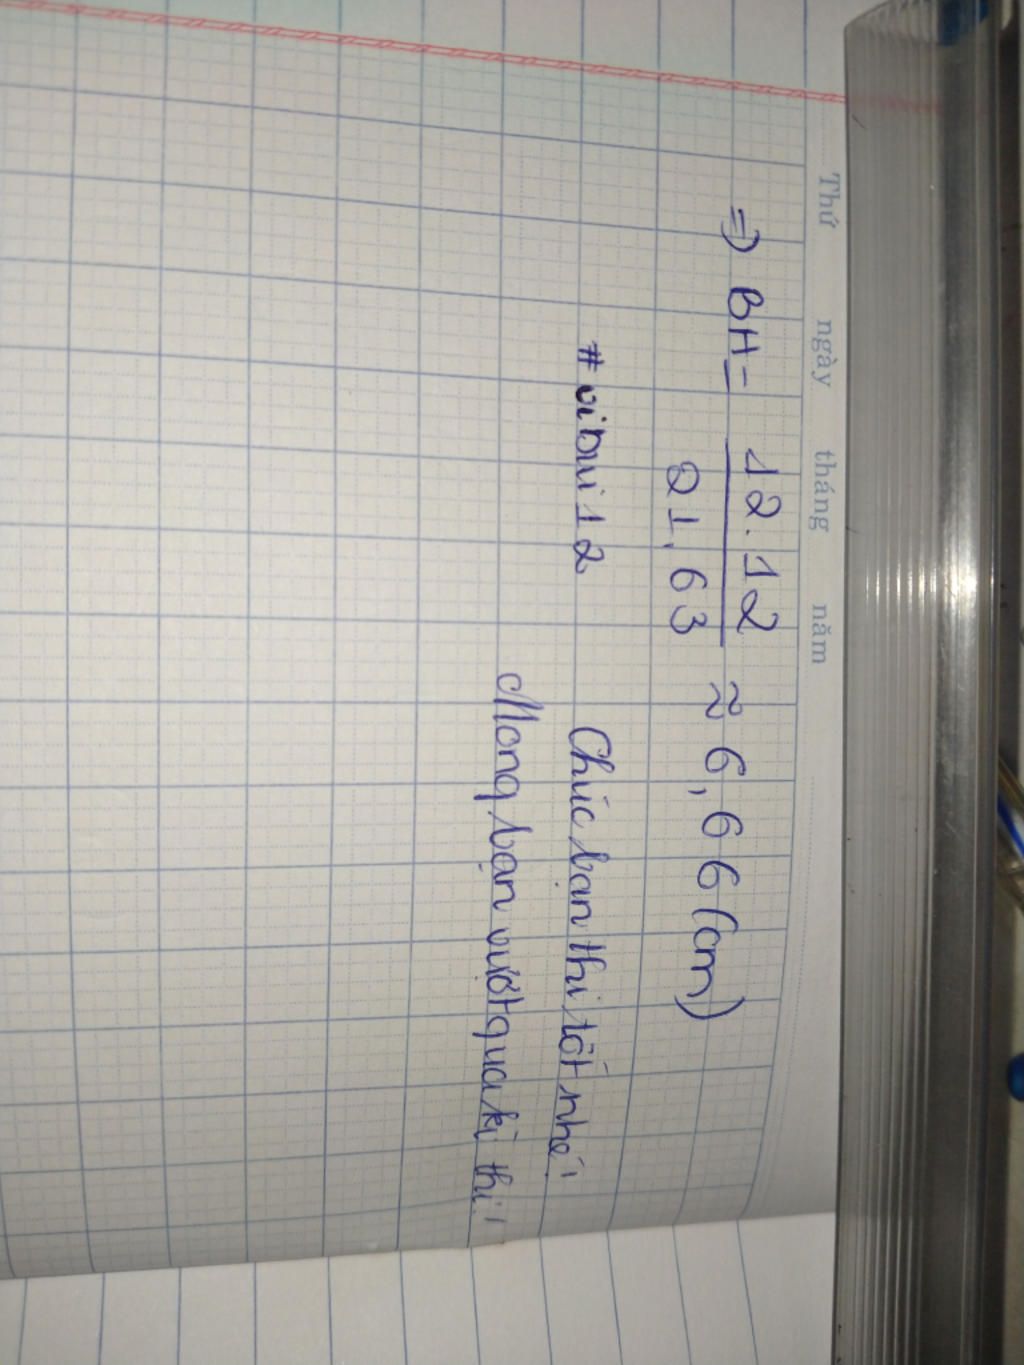 Thứ ngày tháng năm
=) BH = 12.12 / 21,63 ≈ 6,66 (cm)
#vibui12
Chúc bạn thi tốt nhé!
Mong bạn vượt qua kì thi!